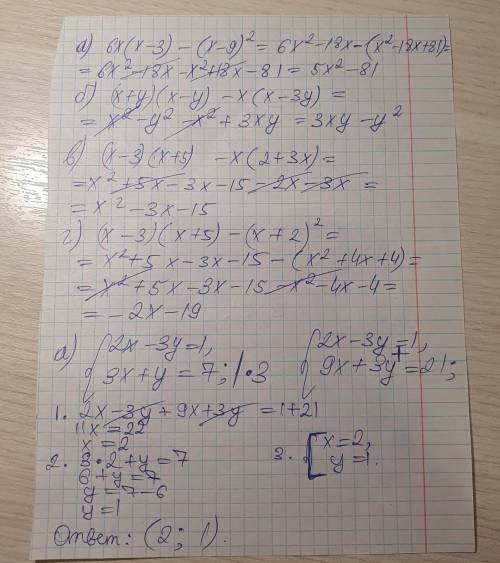 а) 6x(x-3) - (x-9)² = 6x² - 18x - (x² - 18x + 81) =
= 6x² - 18x - x² + 18x - 81 = 5x² - 81
б) (x+y)(x-y) - x(x-3y) =
= x² - y² - x² + 3xy = 3xy - y²
в) (x-3)(x+5) - x(2+3x) =
= x² + 5x - 3x - 15 - 2x - 3x =
= x² - 3x - 15
г) (x-3)(x+5) - (x+2)² =
= x² + 5x - 3x - 15 - (x² + 4x + 4) =
= x² + 5x - 3x - 15 - x² - 4x - 4 =
= - 2x - 19
а) { 2x - 3y = 1, { 2x - 3y = 1,
3x + y = 7; | · 3 9x + 3y = 21; +
1. 2x - 3y + 9x + 3y = 1 + 21
11x = 22
x = 2
2. 3 · 2 + y = 7 3. [ x = 2,
6 + y = 7 y = 1.
y = 7 - 6
y = 1
Ответ: (2; 1).